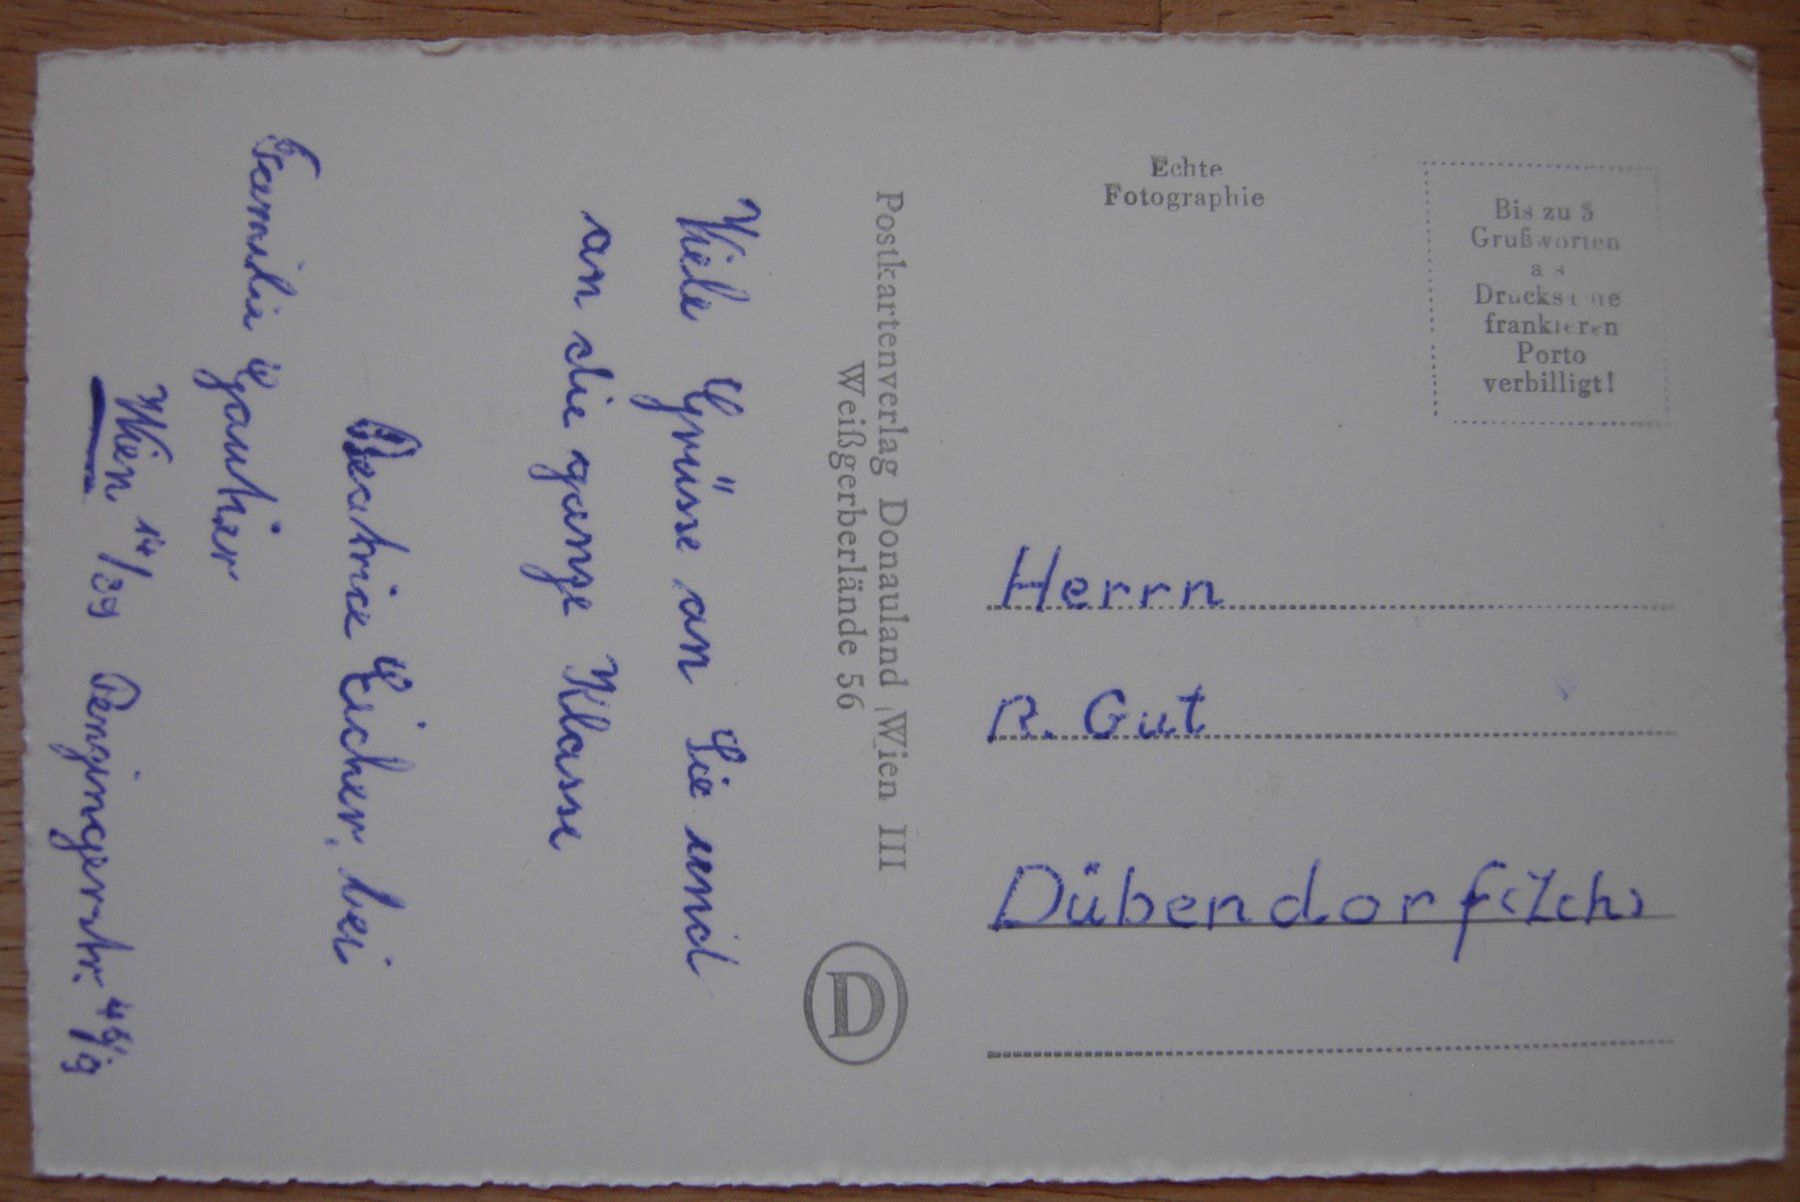 Viele Grüsse an Sie und
an die ganze Klasse
Beatrice Eicher, bei
Familie Gauhier
Wien 14/89 Penzingerstr. 48/9
Postkartenverlag Donauland Wien III
Weißgerberlände 56
D
Echte
Fotographie
Bis zu 5
Grußworten
als
Drucksache
frankieren
Porto
verbilligt!
Herrn
R. Gut
Dübendorf (Zch)